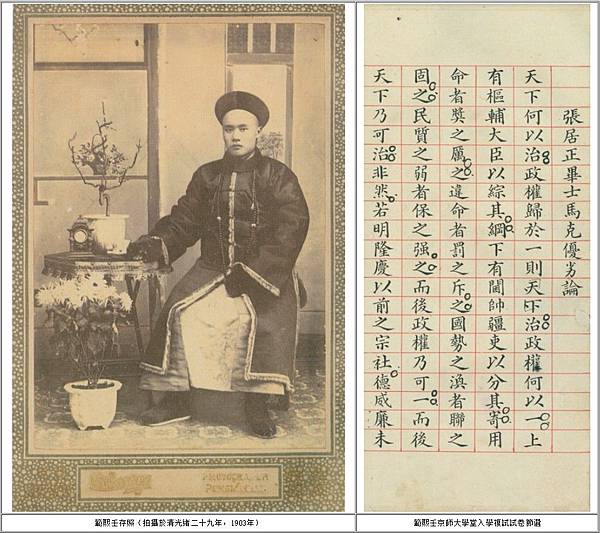 張居正畢士馬克優劣論
天下何以治政權歸於一則天下治政權何以一上
有樞輔大臣以綜其綱下有閫帥疆吏以分其寄用
命者獎之厲之違命者罰之斥之國勢之渙者聯之
固之民質之弱者保之强之而後政權乃可一而後
天下乃可治非然若明隆慶以前之宗社德威廉未
範熙壬存照（拍攝於清光緒二十九年，1903年）
範熙壬京師大學堂入學複試試卷節選